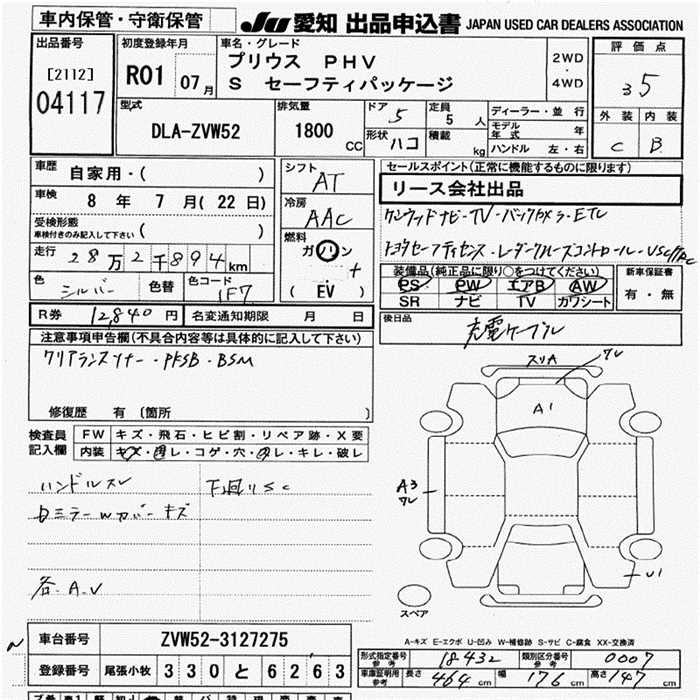 車内保管・守衛保管
JU 愛知 出品申込書 JAPAN USED CAR DEALERS ASSOCIATION
出品番号
[2112]
04117
初度登録年月
R01 07月
車名・グレード
プリウス PHV
S セーフティパッケージ
2WD
・
4WD
評価点
5
外装 内装
C B
型式
DLA-ZVW52
排気量
1800 CC
ドア 5
形状 ハコ
定員 5 人
積載 kg
ディーラー・並行
モデル年式 年
ハンドル 左・右
車歴 自家用・( )
車検 8 年 7 月 (22 日)
受検形態
車検付きのみ記入して下さい ( )
走行 28万2千894km
色 シルバー 色替 色コード 1F7
シフト AT
冷房 AAC
燃料 ガソリン
+
( EV )
セールスポイント(正常に機能するものに限ります)
リース会社出品
ケンウッドナビ・TV・バックカメラ・ETC
トヨタセーフティセンス・レーダークルーズコントロール・VSC/TRC
装備品(純正品に限り○をつけてください)
PS PW エアB AW
SR ナビ TV カワシート
新車保証書
有・無
後日品
充電ケーブル
R券 12,840 円 名変通知期限 月 日
注意事項申告欄(不具合内容等は具体的に記入して下さい)
クリアランスソナー・PKSB・BSM
修復歴 有 〔箇所 〕
検査員記入欄
FW キズ・飛石・ヒビ割・リペア跡・X要
内装 キズ・凹レ・コゲ・穴・スレ・キレ・破レ
ハンドルスレ
下廻りSC
ミラーWカバーキズ
各A.V
スリA
ワレ
A1
A3
ワレ
U1
スペア
A-キズ E-エクボ U-凹み W-補修跡 S-サビ C-腐食 XX-交換済
車台番号 ZVW52-3127275
登録番号 尾張小牧 330 と 6263
形式指定番号 参考 18432 類別区分番号 参考 0007
車庫証明用 参考 長さ 464 cm 幅 176 cm 高さ 147 cm